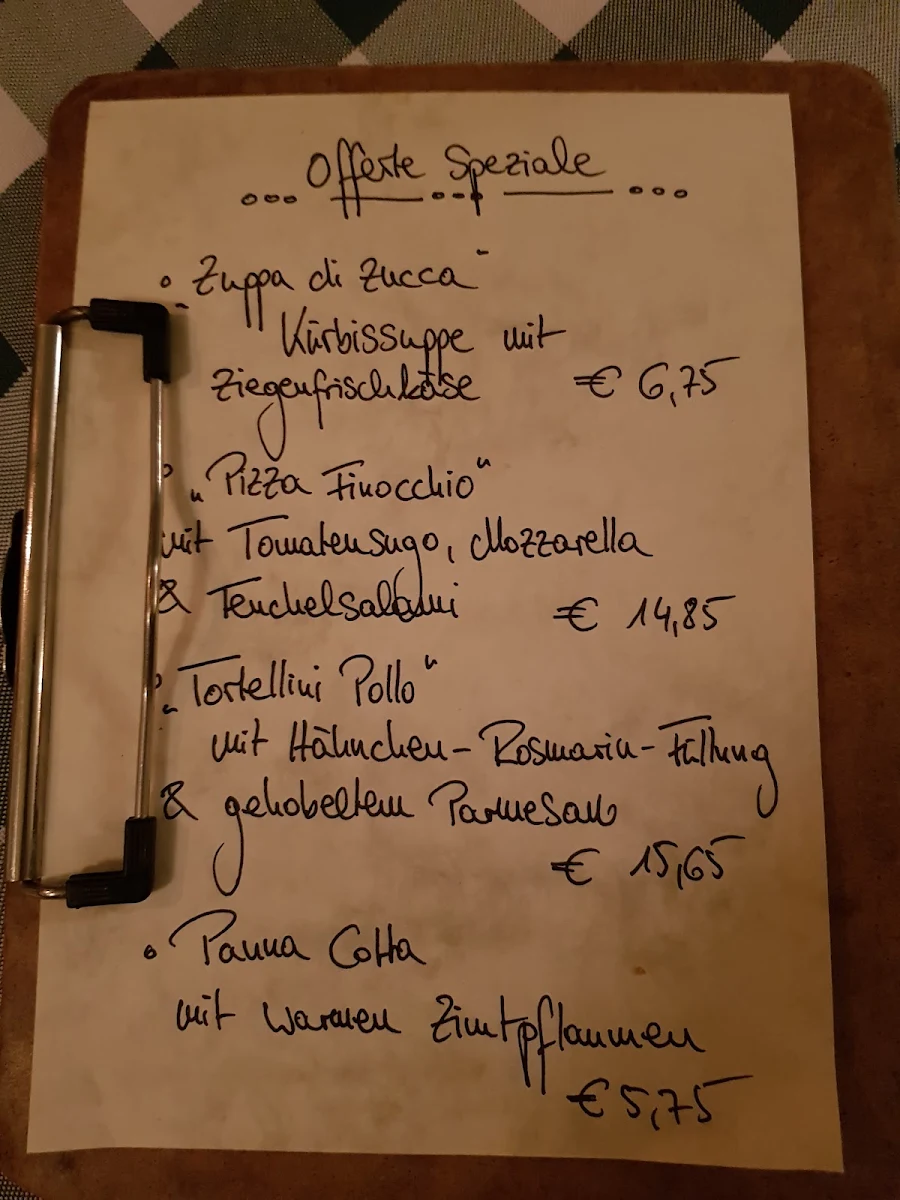 Offerte Speziale
• „Zuppa di Zucca"
Kürbissuppe mit
Ziegenfrischkäse € 6,75
• „Pizza Finocchio"
mit Tomatensugo, Mozzarella
& Fenchelsalami € 14,85
• „Tortellini Pollo"
mit Hähnchen-Rosmarin-Füllung
& gehobeltem Parmesan
€ 15,65
• Panna Cotta
mit warmen Zimtpflaumen
€ 5,75